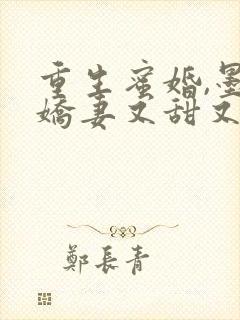 重生蜜婚,墨
嬌妻又甜又
鄭長青